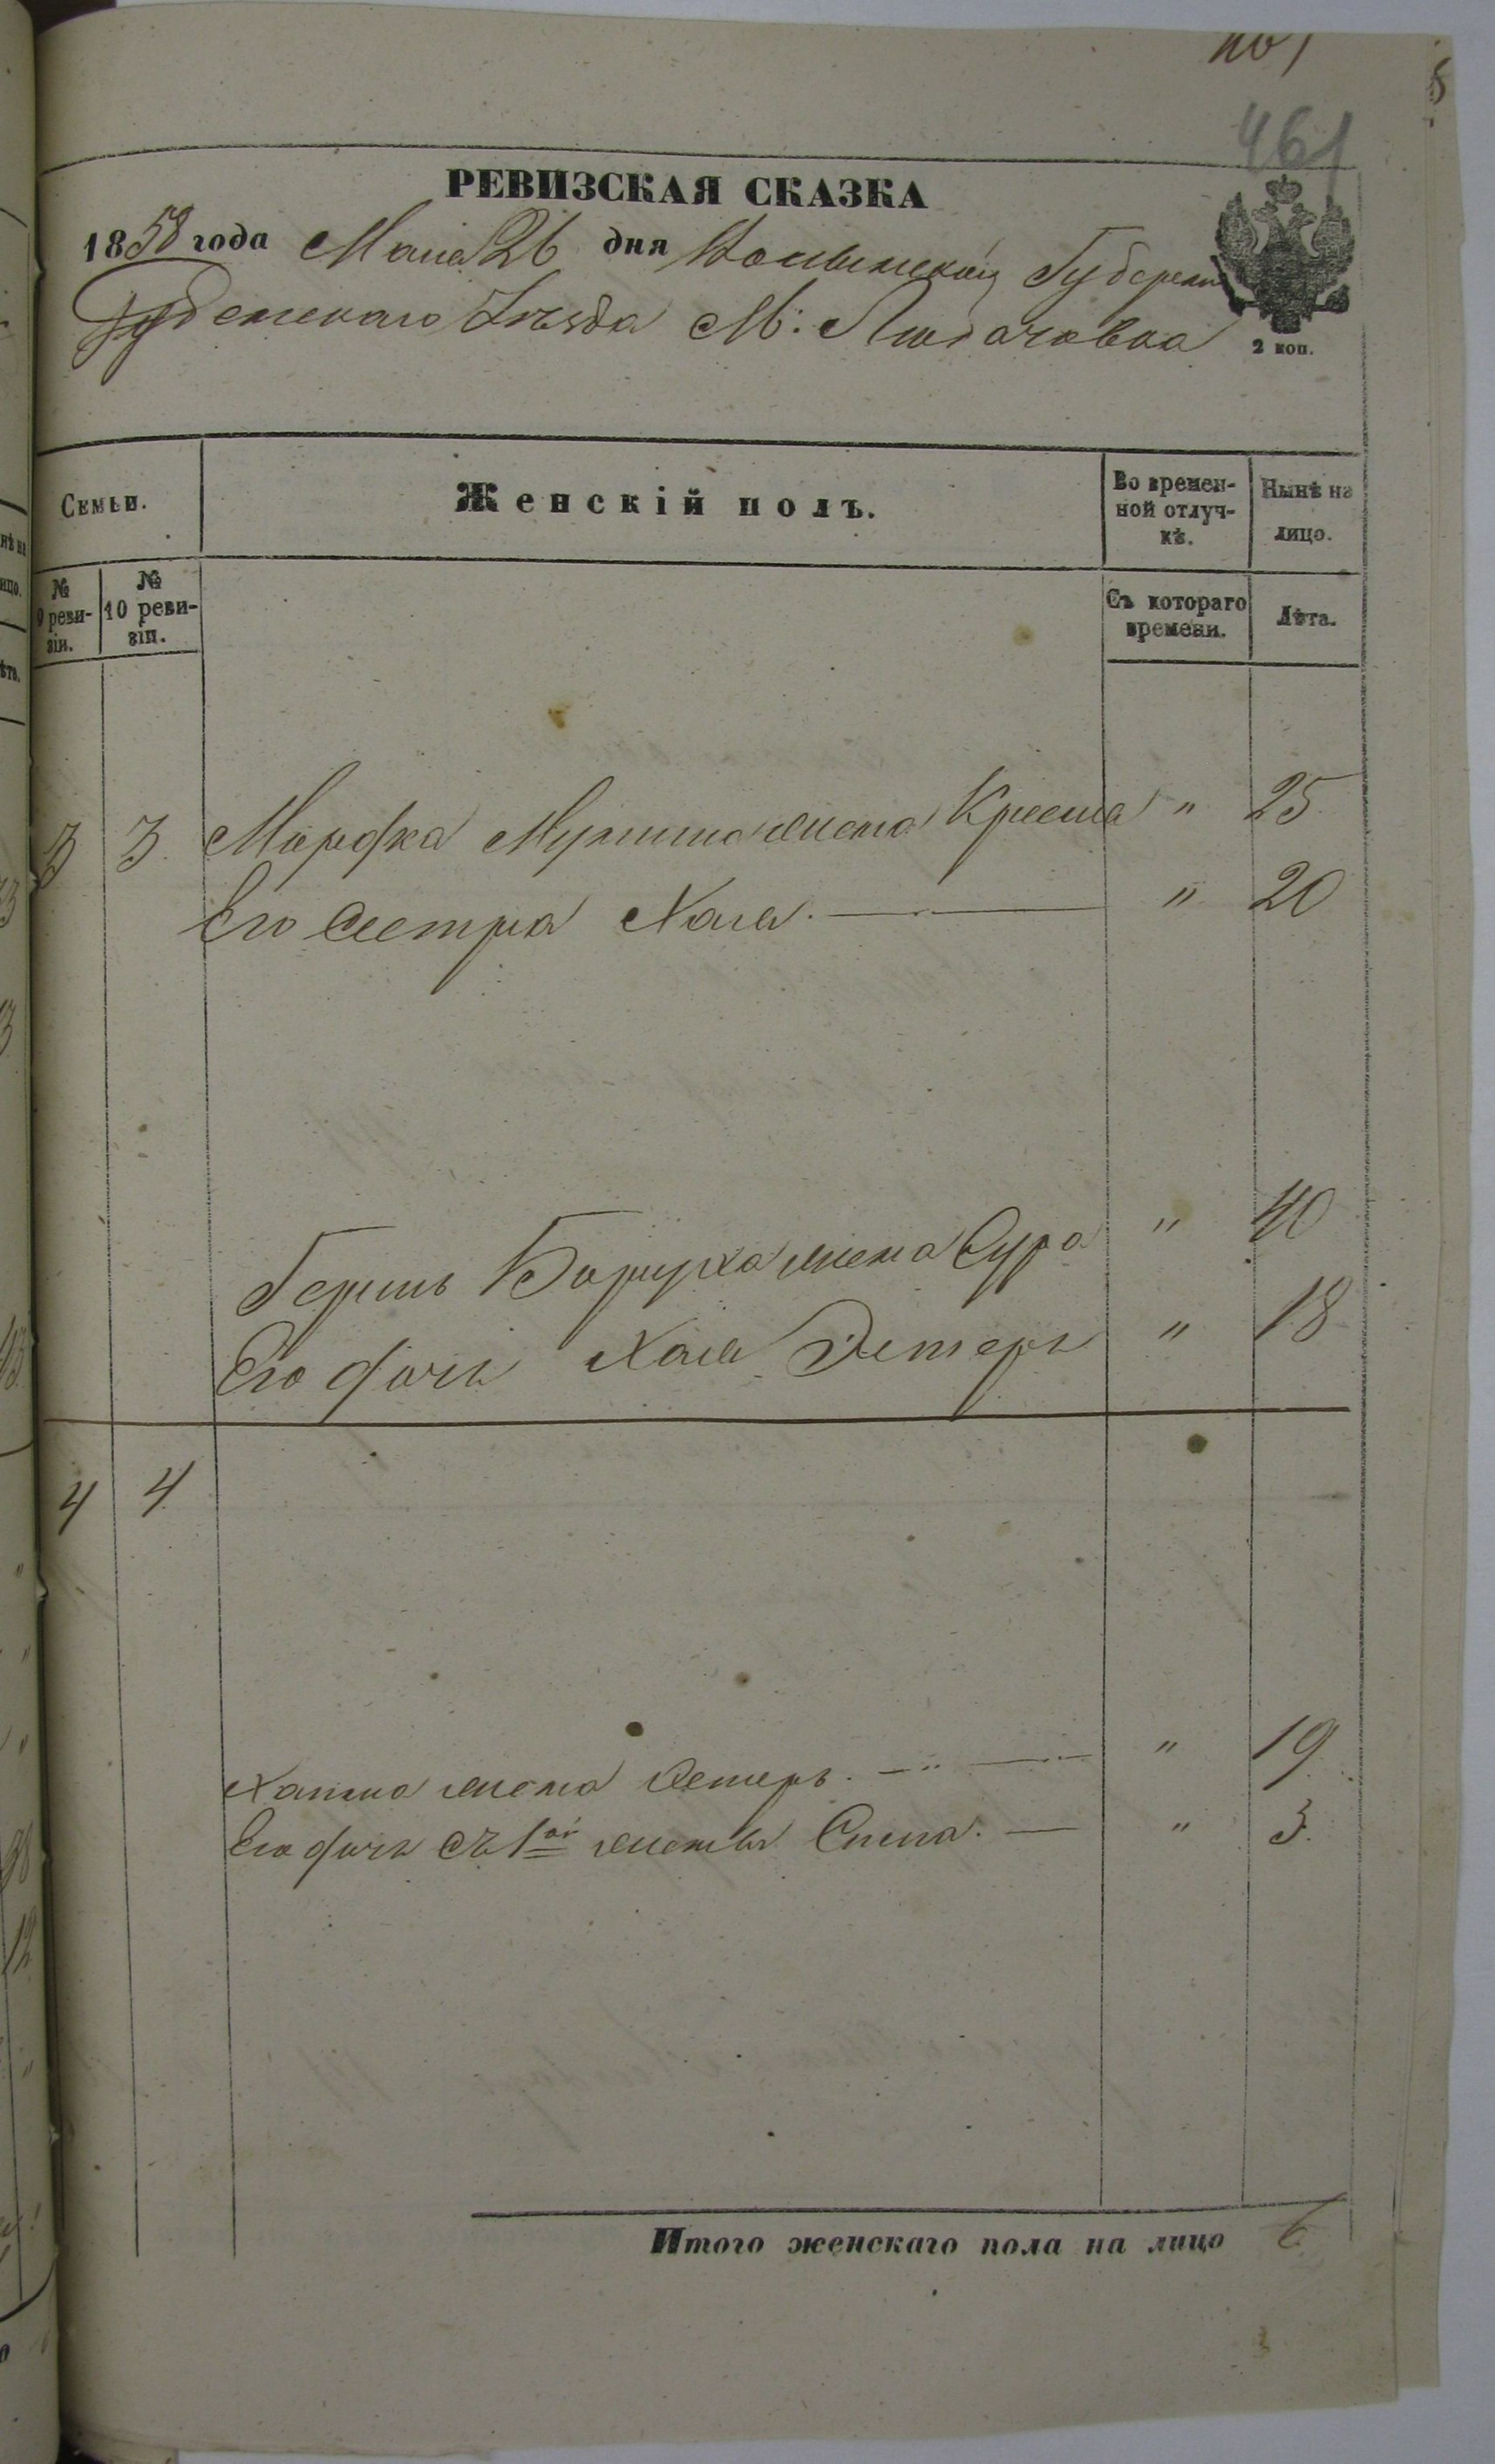 461
РЕВИЗСКАЯ СКАЗКА
1858 года Мая 26 дня Волынской Губерніи
Дубенскаго Уѣзда М:
2 коп.
Семьи.
Женскій полъ.
Во времен-
ной отлуч-
кѣ.
Нынѣ на
лицо.
№
9 реви-
зіи.
№
10 реви-
зіи.
Съ котораго
времени.
Лѣта.
3 3. жена " 25
Его Сестра Хая. " 20
Гершъ Боруха жена Сура " 40
Его дочь Хая Эстеръ " 18
4 4
жена Естеръ. " 19
Его дочь съ 1ой жены " 3.
Итого женскаго пола на лицо 6